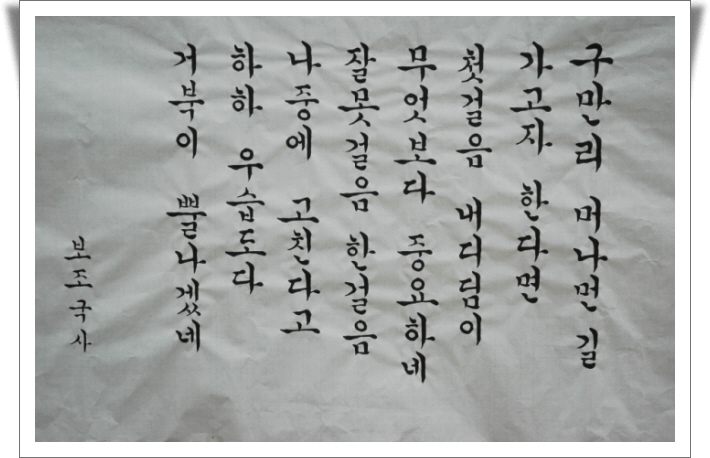 구만리 머나먼 길
가고자 한다면
첫걸음 내디딤이
무엇보다 중요하네
잘못걸음 한걸음
나중에 고친다고
하하 우습도다
거북이 뿔나겠네
보조국사